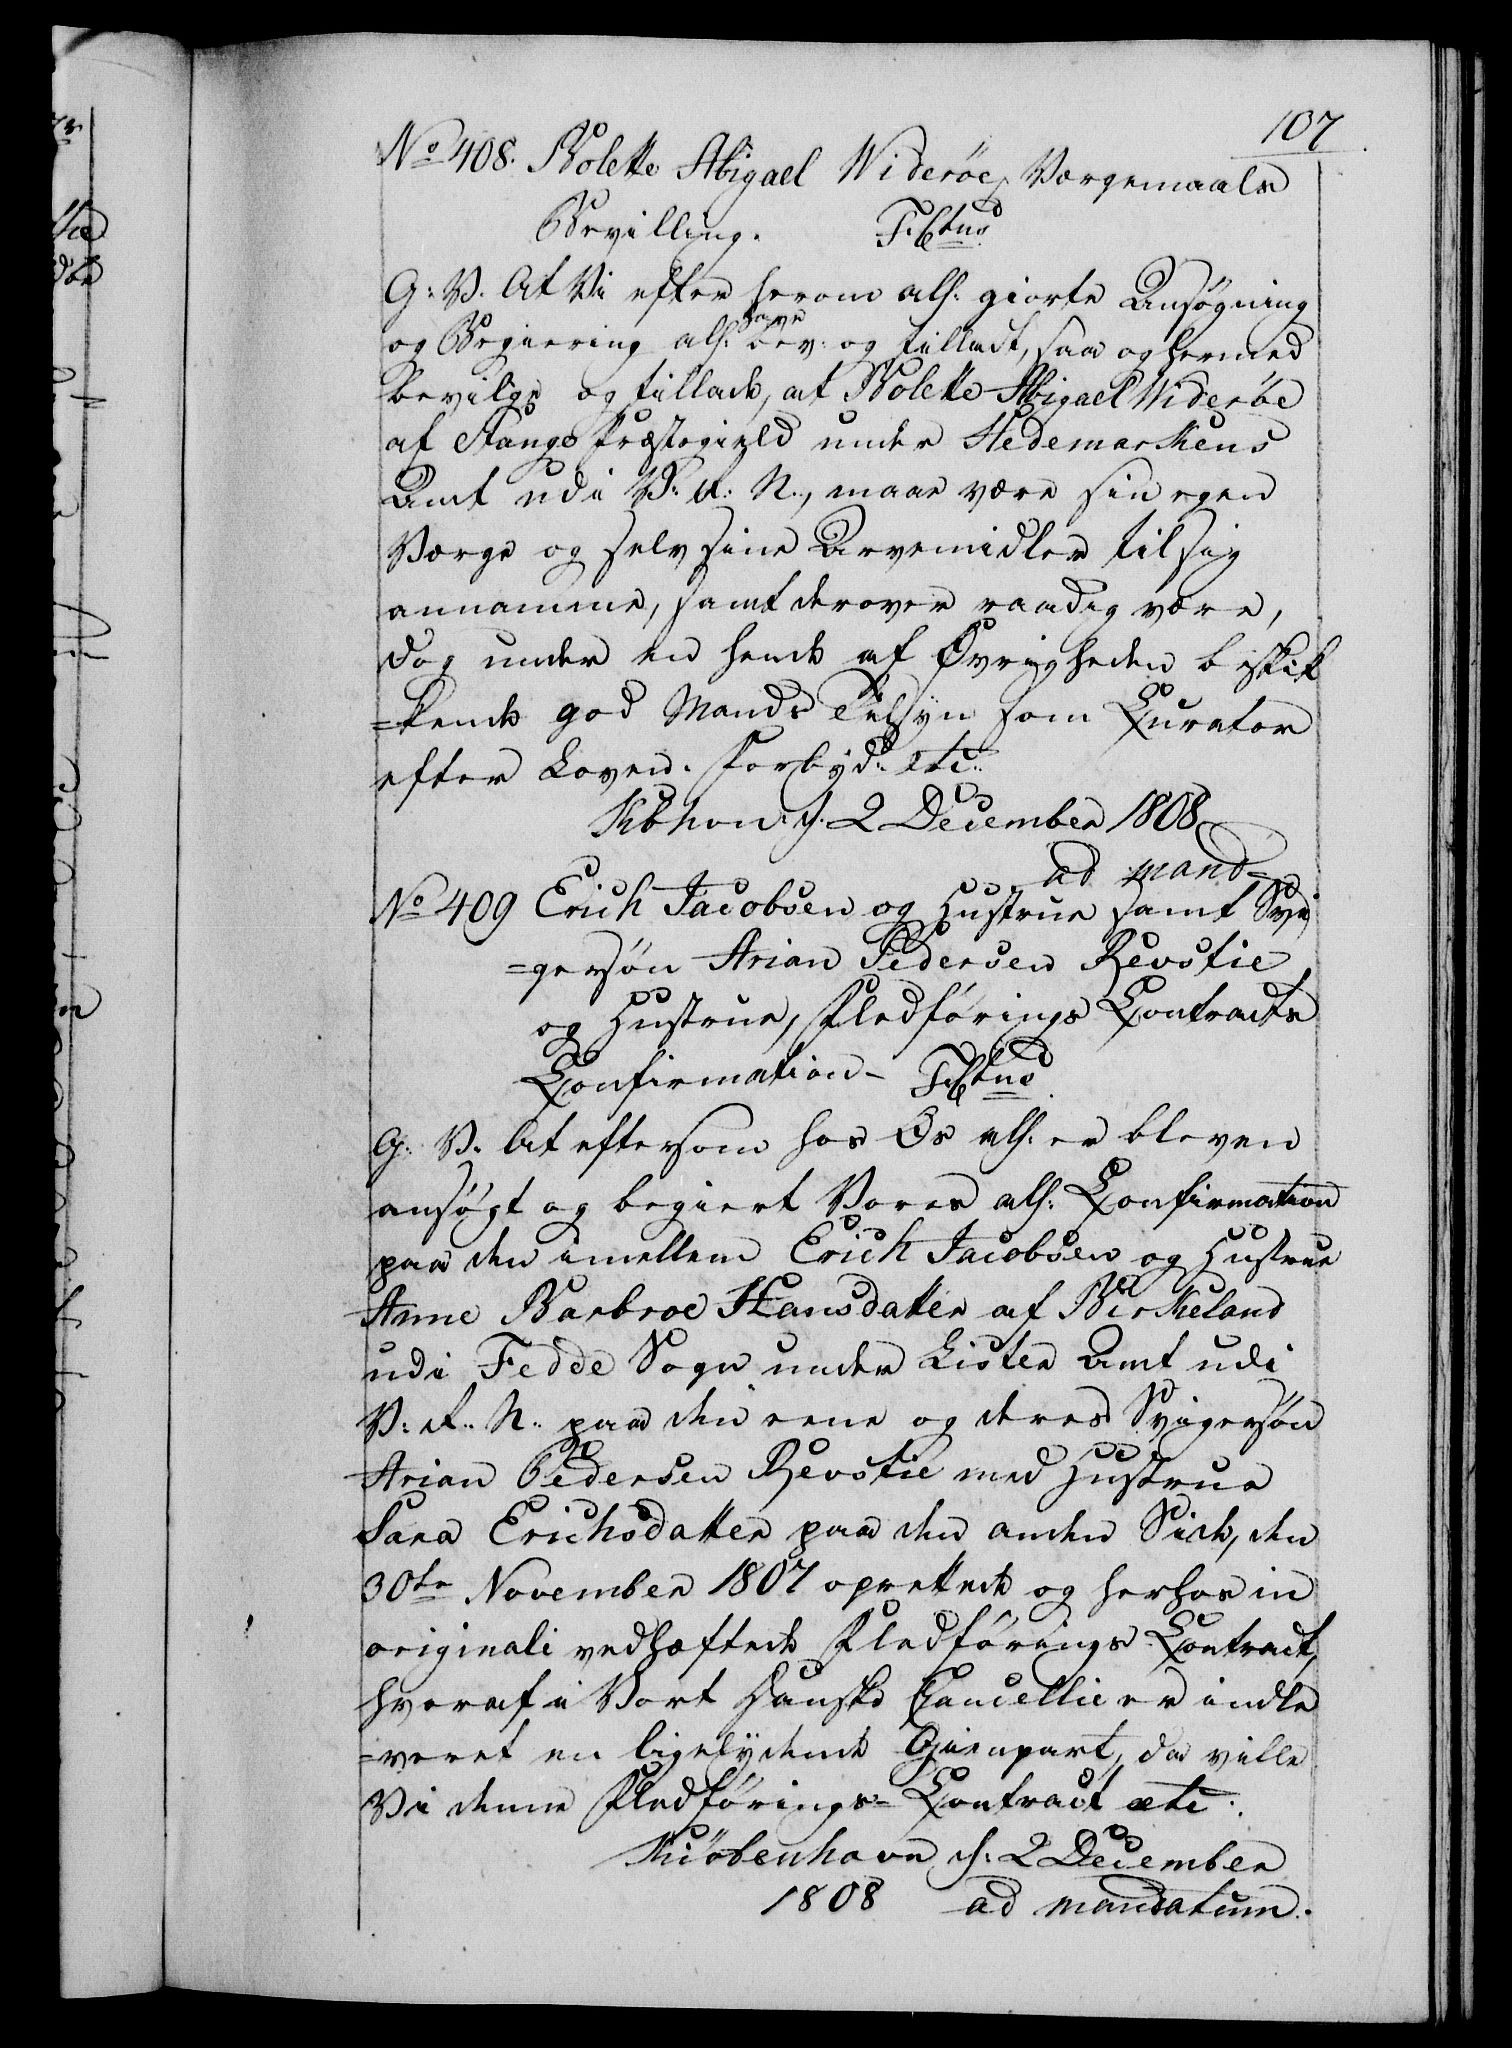 107
No 408. Bolette Abigael Widerøe, Værgemaals
Bevilling. F: 6tus
G: V. At Vi efter herom all: giorte Ansøgning
og Begiering all: have bev: og tilladt, saa og hermed
bevilge og tillade, at Bolette Abigael Widerøe
af Stange Præstegield under Hedemarkens
Amt udi V: R: N., maae være sin egen
Værge og selv sine Arvemidler til sig
annamme, samt derover raadig være,
dog under en hende af Øvrigheden beskik
=kende god Mands Tilsyn som Curator
efter Loven. Forbyd: etc:
Kbhvn. d. 2 December 1808
ad mand
No 409 Erich Jacobsen og Hustrue samt Svi
=gersøn Arian Pedersen Revstie
og Hustrue, Fledførings Contracts
Confirmation - F: 6tus
G: V. At eftersom hos Os all: er bleven
ansøgt og begiert Vores all: Confirmation
paa den imellem Erich Jacobsen og Hustrue
Anne Barbroe Hansdatter af Birkeland
udi Fedde Sogn under Lister Amt udi
V: R: N: paa den eene og deres Svigersøn
Arian Pedersen Revstie med Hustrue
Sara Erichsdatter paa den anden Side, den
30te November 1807 oprettede og herhos in
originali vedhæftede Fledførings-Contract,
hvoraf i Vort Danske Cancellie er indle
=veret en ligelydende Gienpart, da ville
Vi denne Fledførings=Contract etc:
Kiøbenhavn d: 2 December
1808 ad mandatum.